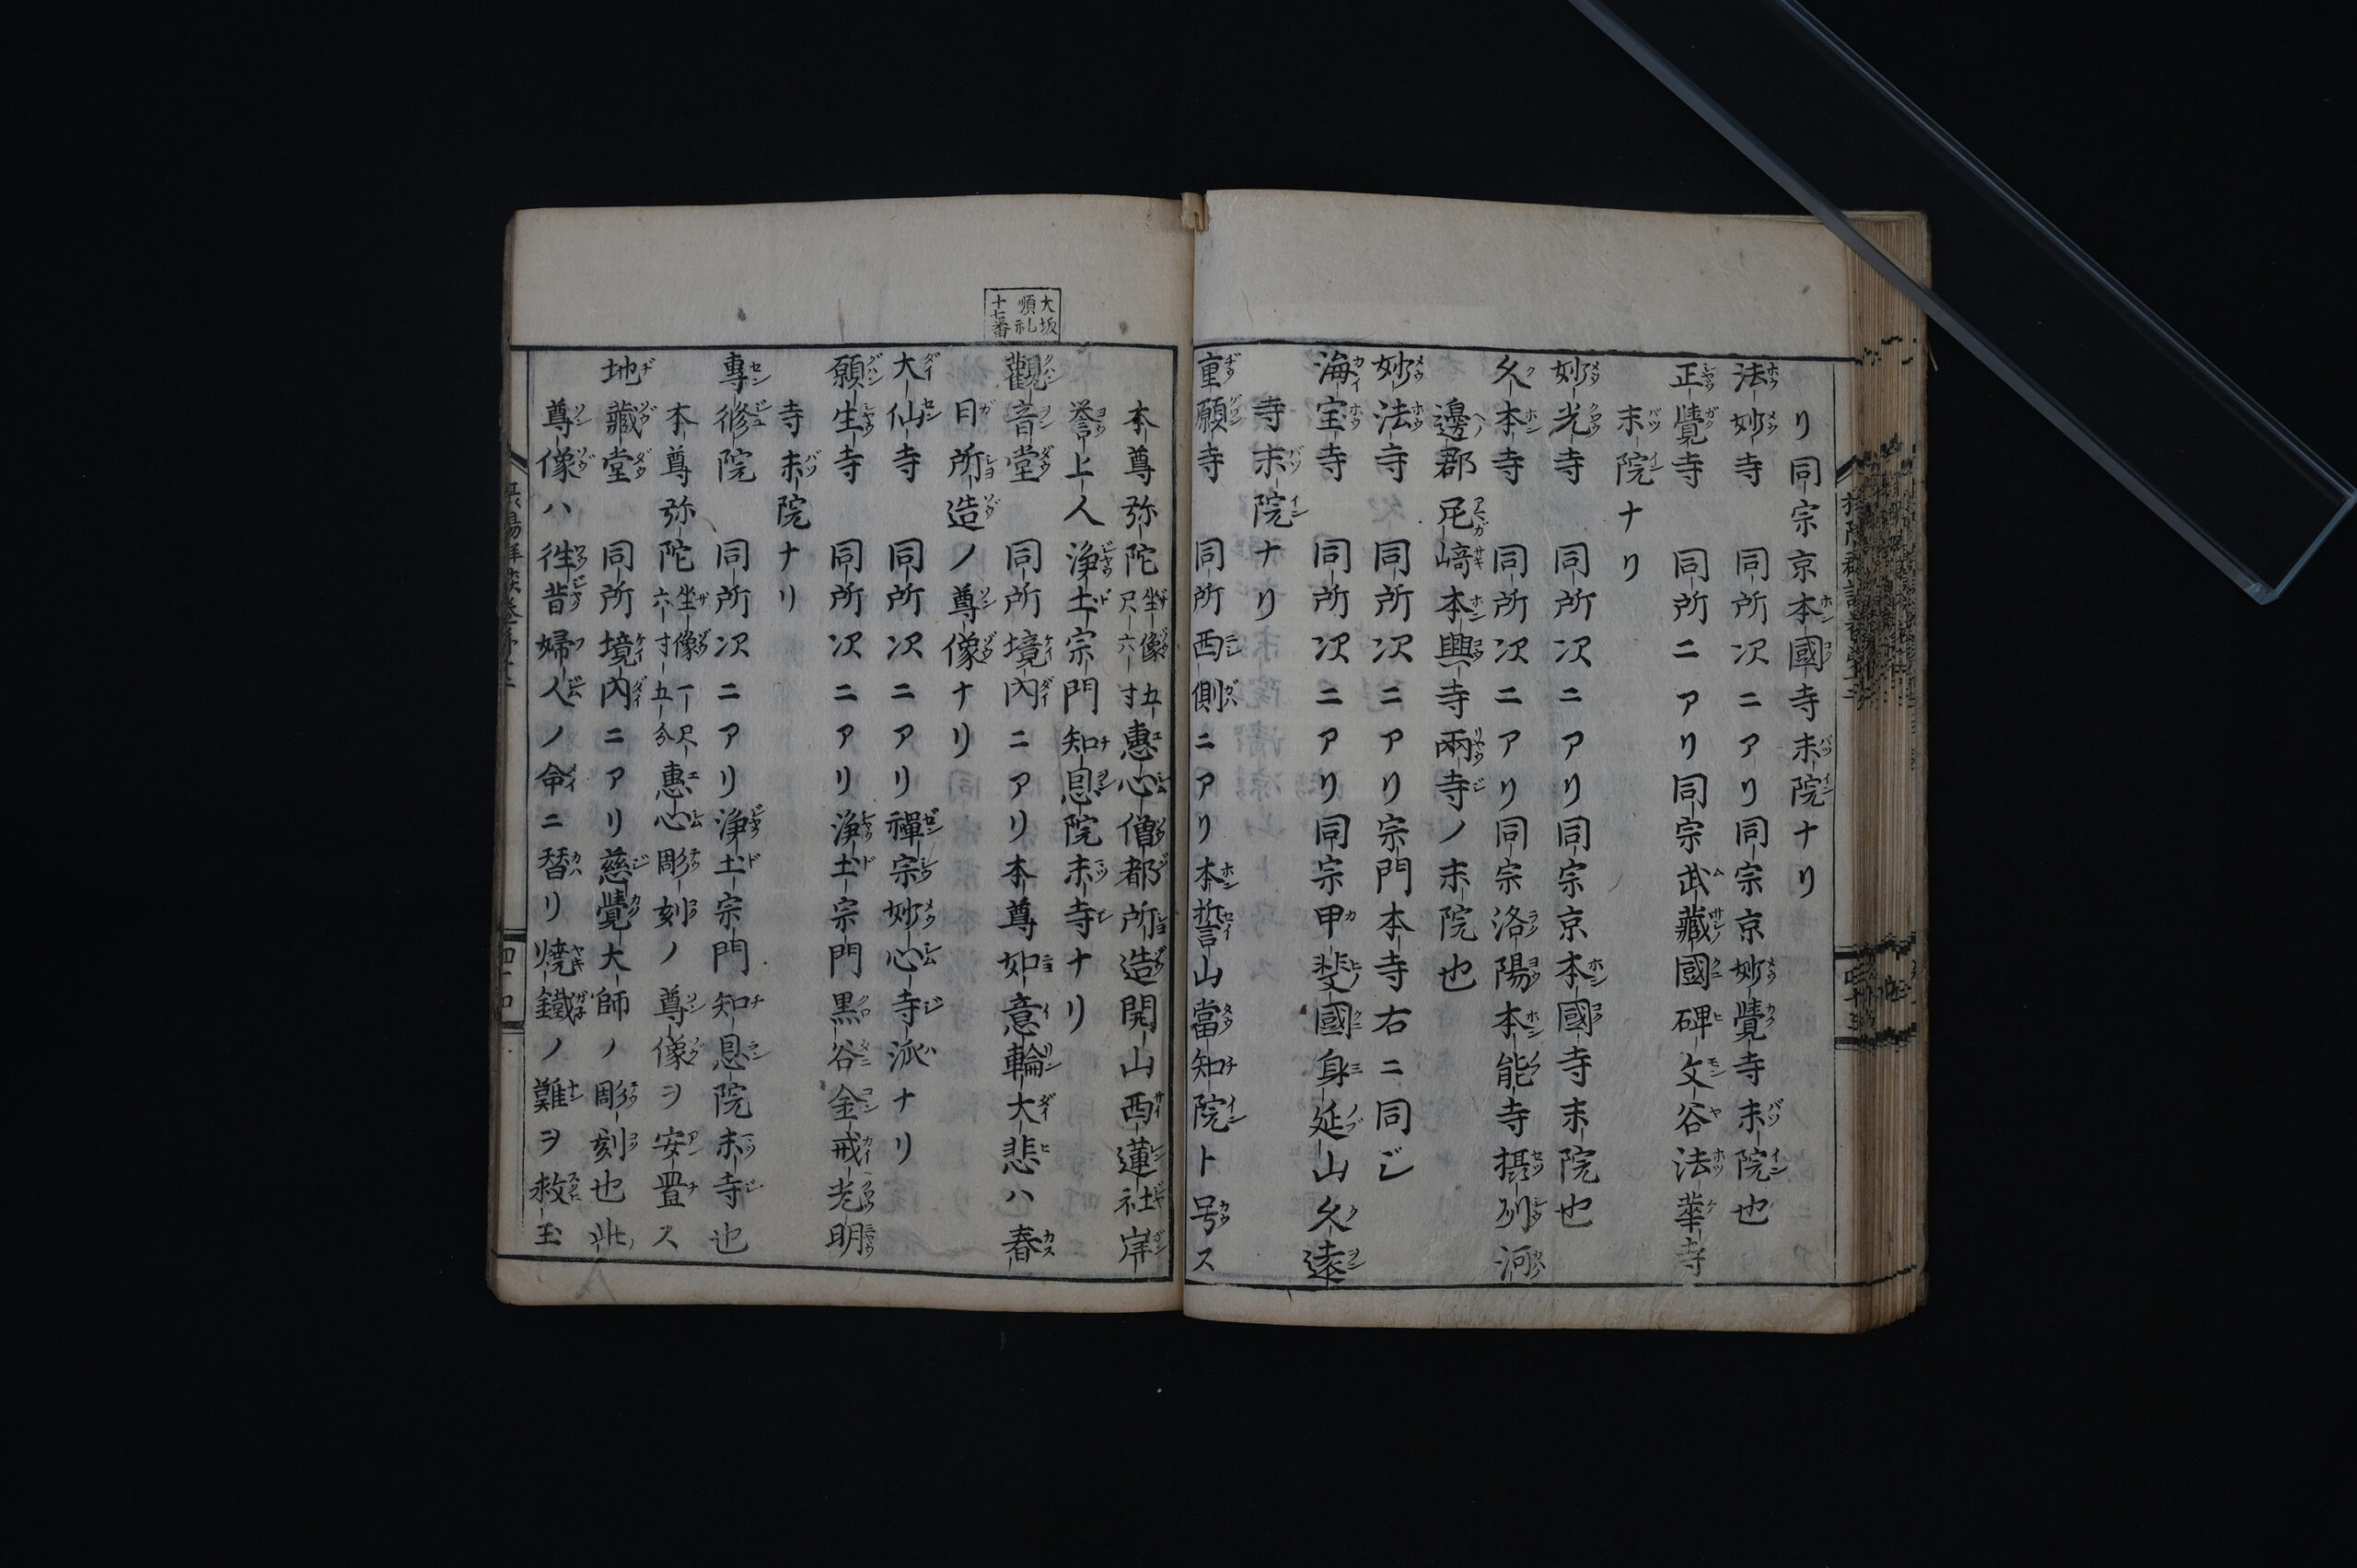 リ同宗京本國寺末院ナリ
法妙寺　同所次ニアリ同宗京妙覺寺末院也
正覺寺　同所ニアリ同宗武藏國碑文谷法華寺
末院ナリ
妙光寺　同所次ニアリ同宗京本國寺末院也
久本寺　同所次ニアリ同宗洛陽本能寺摂州河
邊郡尼﨑本興寺兩寺ノ末院也
妙法寺　同所次ニアリ宗門本寺右ニ同ジ
海宝寺　同所次ニアリ同宗甲斐國身延山久遠
寺末院ナリ
重願寺　同所西側ニアリ本誓山當知院ト号ス
本尊弥陀坐像五尺六寸惠心僧都所造開山西蓮社岸
誉上人浄土宗門知恩院末寺ナリ
大坂順礼十七番
觀音堂　同所境内ニアリ本尊如意輪大悲ハ春
日所造ノ尊像ナリ
大仙寺　同所次ニアリ禪宗妙心寺派ナリ
願生寺　同所次ニアリ浄土宗門黒谷金戒光明
寺末院ナリ
專修院　同所次ニアリ浄土宗門知恩院末寺也
本尊弥陀坐像一尺六寸五分惠心彫刻ノ尊像ヲ安置ス
地藏堂　同所境内ニアリ慈覺大師ノ彫刻也此
尊像ハ徃昔婦人ノ命ニ替リ焼鐵ノ難ヲ救玉